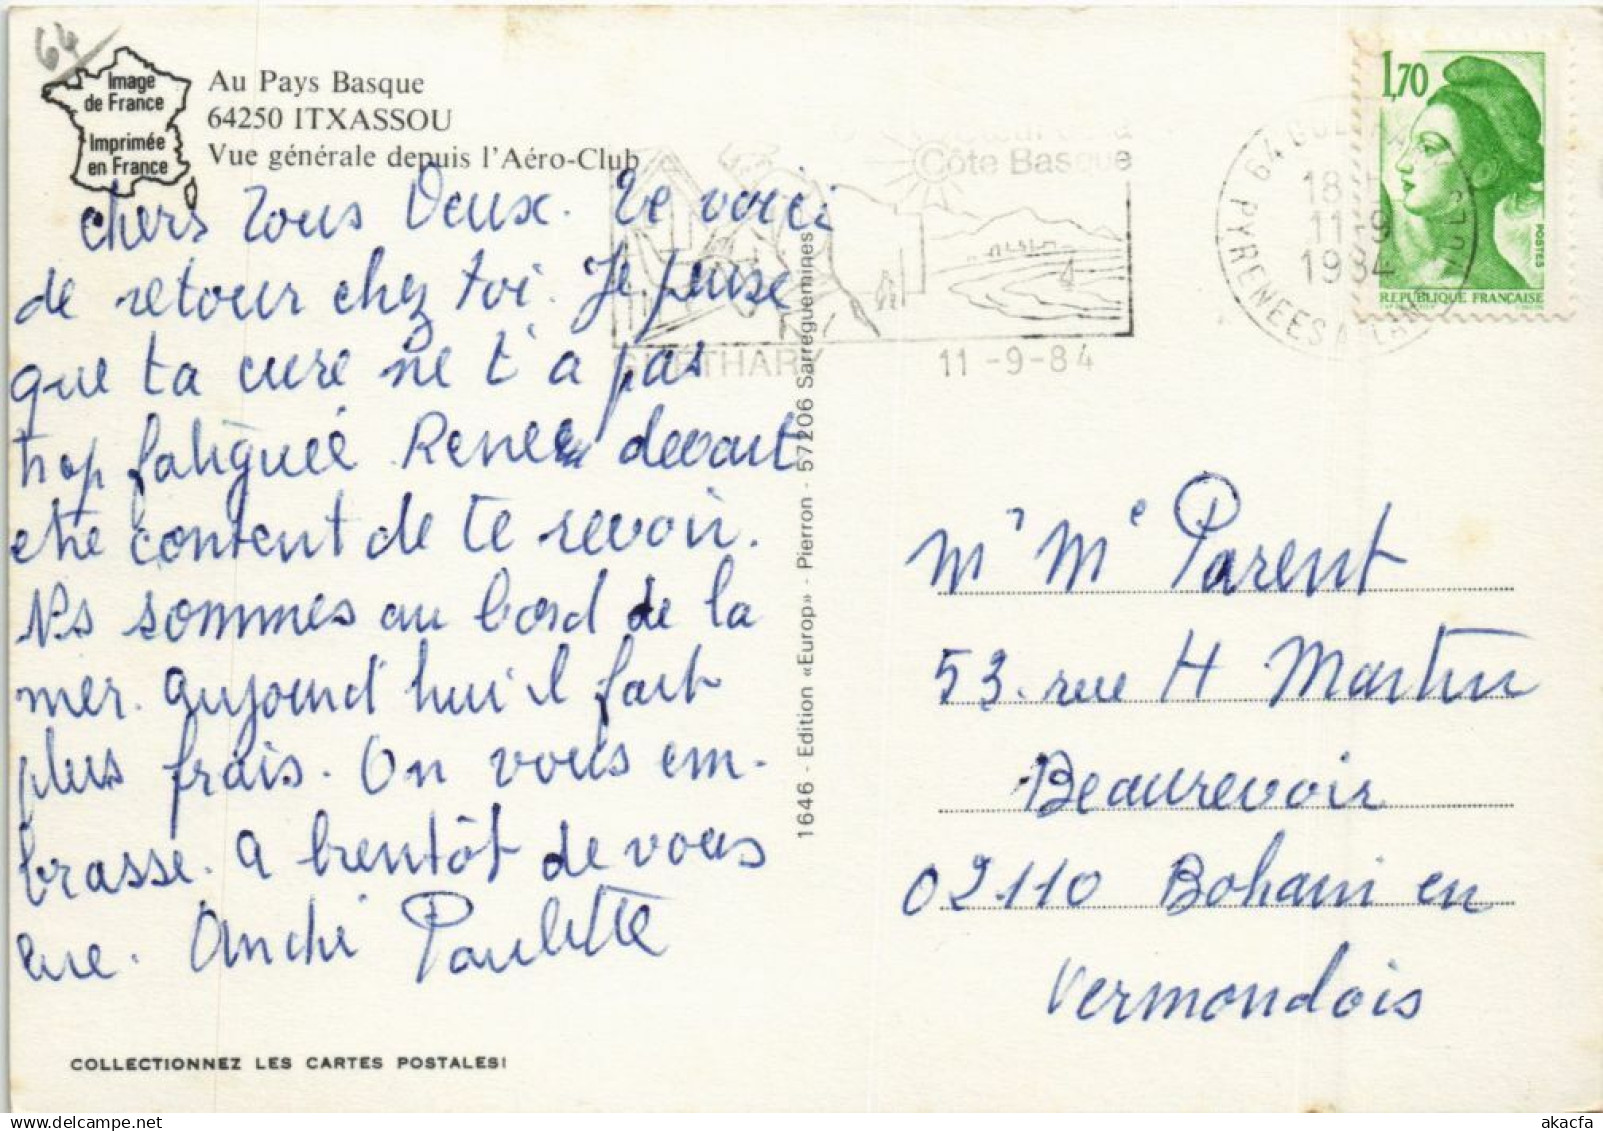 64
Image
de France
Imprimée
en France
Au Pays Basque
64250 ITXASSOU
Vue générale depuis l'Aéro-Club
Chers Tous Deux. Te voici
de retour chez toi. Je pense
que ta cure ne t'a pas
trop fatiguée Renée devait
etre content de te revoir.
Ns sommes au bord de la
mer. aujourd'hui il fait
plus frais. On vous em-
brasse. a bientôt de vous
lire. André Paulette
COLLECTIONNEZ LES CARTES POSTALES!
1646 - Edition «Europ» - Pierron - 57206 Sarreguemines
Côte Basque
GUETHARY 11-9-84
64 PYRENEES ATLANT
18
11-9
1984
1,70
POSTES
REPUBLIQUE FRANÇAISE
Mr Me Parent
53. rue H Martin
Beaurevoir
02110 Bohain en
Vermondois
akacfa